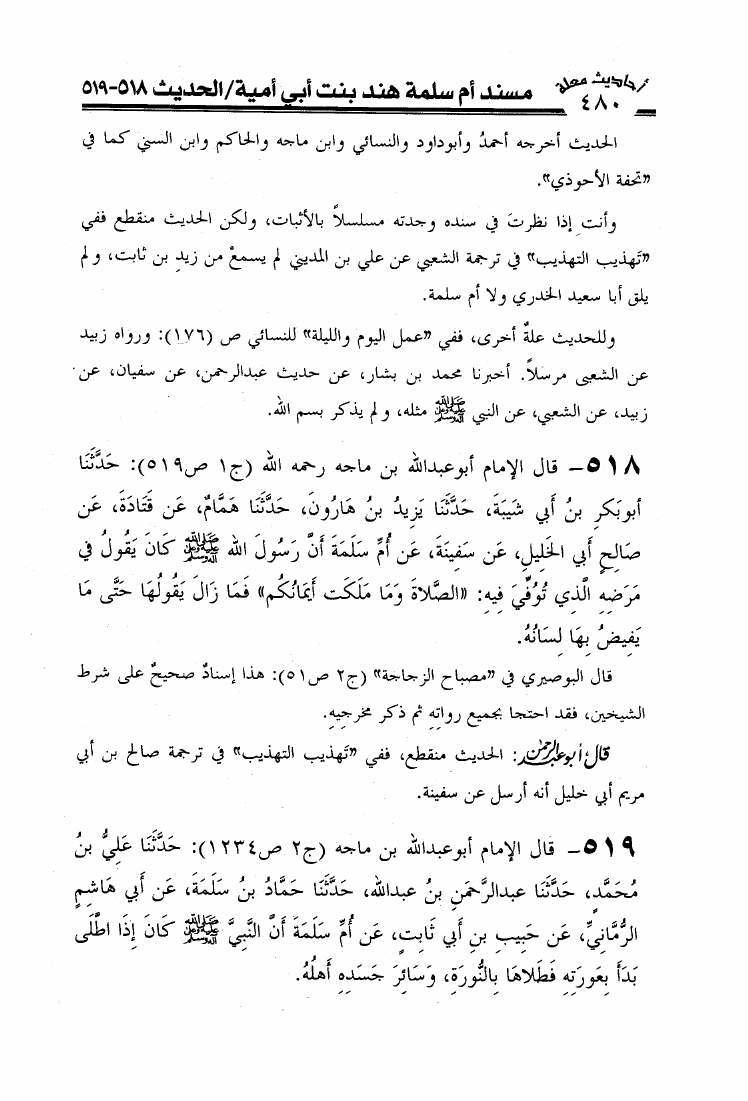 أحاديث معلة
٤٨٠
مسند أم سلمة هند بنت أبي أمية/الحديث ٥١٨-٥١٩
الحديث أخرجه أحمدُ وأبوداود والنسائي وابن ماجه والحاكم وابن السني كما في
«تحفة الأحوذي».
وأنت إذا نظرتَ في سنده وجدته مسلسلاً بالأثبات، ولكن الحديث منقطع ففي
«تَهذيب التهذيب» في ترجمة الشعبي عن علي بن المديني لم يسمعْ من زيدِ بن ثابت، ولم
يلق أبا سعيد الخدري ولا أم سلمة.
وللحديث علةٌ أخرى، ففي «عمل اليوم والليلة» للنسائي ص (١٧٦): ورواه زبيد
عن الشعبى مرسلاً. أخبرنا محمد بن بشار، عن حديث عبدالرحمن، عن سفيان، عن
زبيد، عن الشعبي، عن النبي ﷺ مثله، ولم يذكر بسم الله.
٥١٨- قال الإمام أبوعبدالله بن ماجه رحمه الله (ج١ ص٥١٩): حَدَّثَنَا
أبوبَكرِ بنُ أبي شَيبَةَ، حَدَّثَنَا يَزِيدُ بنُ هَارُونَ، حَدَّثَنَا هَمَّامٌ، عَن قَتَادَةَ، عَن
صَالِحٍ أبي الخَليلِ، عَن سَفِينَةَ، عَن أُمِّ سَلَمَةَ أَنَّ رَسُولَ الله ﷺ كَانَ يَقُولُ في
مَرَضِهِ الَّذِي تُوُفِّيَ فِيهِ: «الصَّلاةَ وَمَا مَلَكَت أَيمَانُكُم» فَمَا زَالَ يَقُولُهَا حَتَّى مَا
يَفِيضُ بِهَا لِسَانُهُ.
قال البوصيري في «مصباح الزجاجة» (ج٢ ص٥١): هذا إسنادٌ صحيحٌ على شرط
الشيخين، فقد احتجا بجميع رواتِهِ ثم ذكر مخرجيه.
قال أبو عبدالرحمن: الحديث منقطع، ففي «تَهذيب التهذيب» في ترجمة صالح بن أبي
مريم أبي خليل أنه أرسل عن سفينة.
٥١٩- قال الإمام أبوعبدالله بن ماجه (ج٢ ص١٢٣٤): حَدَّثَنَا عَلِيُّ بنُ
مُحَمَّدٍ، حَدَّثَنَا عبدالرَّحمَنِ بنُ عبدالله، حَدَّثَنَا حَمَّادُ بنُ سَلَمَةَ، عَن أبي هَاشِمٍ
الرُّمَّانِيِّ، عَن حَبِيبِ بنِ أبي ثَابِتٍ، عَن أُمِّ سَلَمَةَ أَنَّ النَّبِيَّ ﷺ كَانَ إِذَا اطَّلَى
بَدَأَ بِعَورَتِهِ فَطَلاهَا بِالنُّورَةِ، وَسَائِرَ جَسَدِهِ أَهلُهُ.